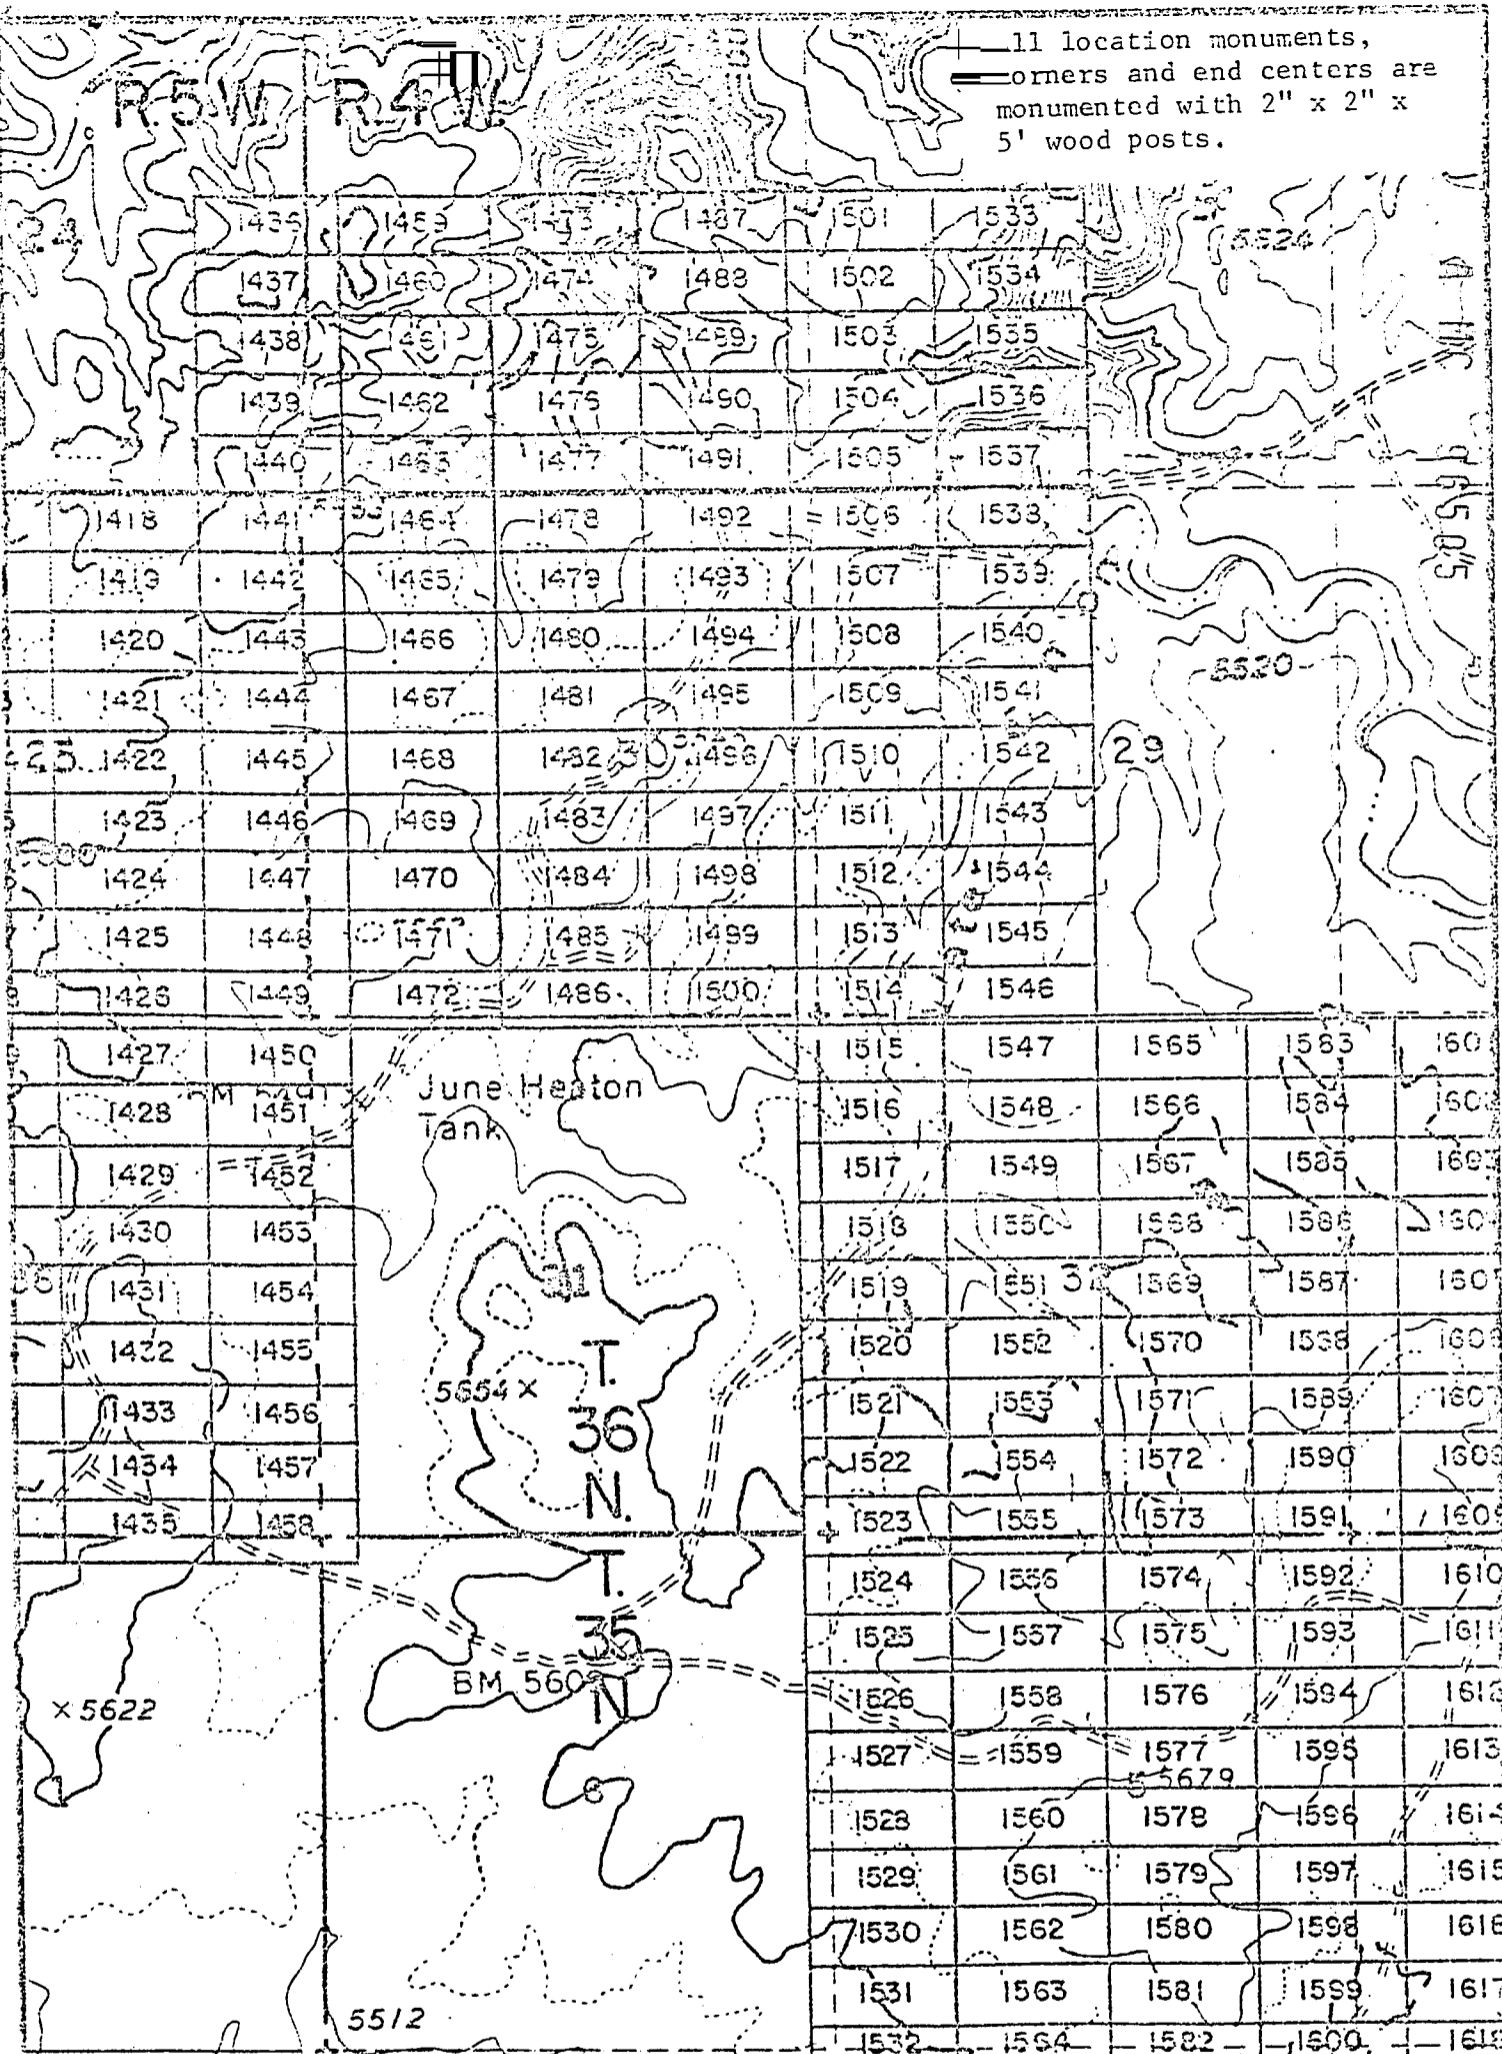 11 location monuments,
R.5W. R.4W.
orners and end centers are
monumented with 2" x 2" x
5' wood posts.
1436 1459 1473 1487 1501 1533
5524
1437 1460 1474 1488 1502 1534
1438 1461 1475 1489 1503 1535
1439 1462 1476 1490 1504 1536
1440 1463 1477 1491 1505 1537
1418 1441 1464 1478 1492 1506 1538
1419 1442 1465 1479 1493 1507 1539
1420 1443 1466 1480 1494 1508 1540
5520
1421 1444 1467 1481 1495 1509 1541
25 1422 1445 1468 1482 30 1496 1510 1542 29
1423 1446 1469 1483 1497 1511 1543
1424 1447 1470 1484 1498 1512 1544
1425 1448 1471 1485 1499 1513 1545
1426 1449 1472 1486 1500 1514 1546
1427 1450 1515 1547 1565 1583 160
June Heaton
Tank
1428 1451 1516 1548 1566 1584 160
1429 1452 1517 1549 1567 1585 160
1430 1453 1518 1550 1568 1586 160
1431 1454 31 1519 1551 32 1569 1587 160
1432 1455 T. 1520 1552 1570 1588 160
5654 ×
1433 1456 36 1521 1553 1571 1589 160
1434 1457 N. 1522 1554 1572 1590 160
1435 1458 1523 1555 1573 1591 160
T. 1524 1556 1574 1592 1610
35 1525 1557 1575 1593 1611
BM 560
N
× 5622 1526 1558 1576 1594 161
1527 1559 1577 1595 1613
5 5679
6
1528 1560 1578 1596 161
1529 1561 1579 1597 1615
1530 1562 1580 1598 1616
1531 1563 1581 1599 1617
5512
1532 1564 1582 1600 161